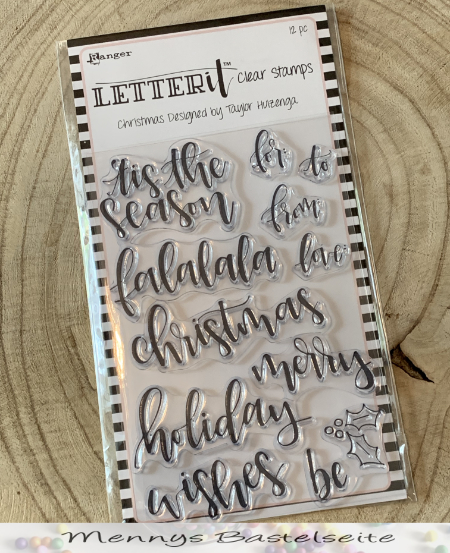 Ranger
12 pc
LETTERit™ Clear Stamps
Christmas Designed by Taylor Huizenga
'tis the
season
for
to
from
falalala
love
christmas
merry
holiday
wishes
be
Mennys Bastelseite